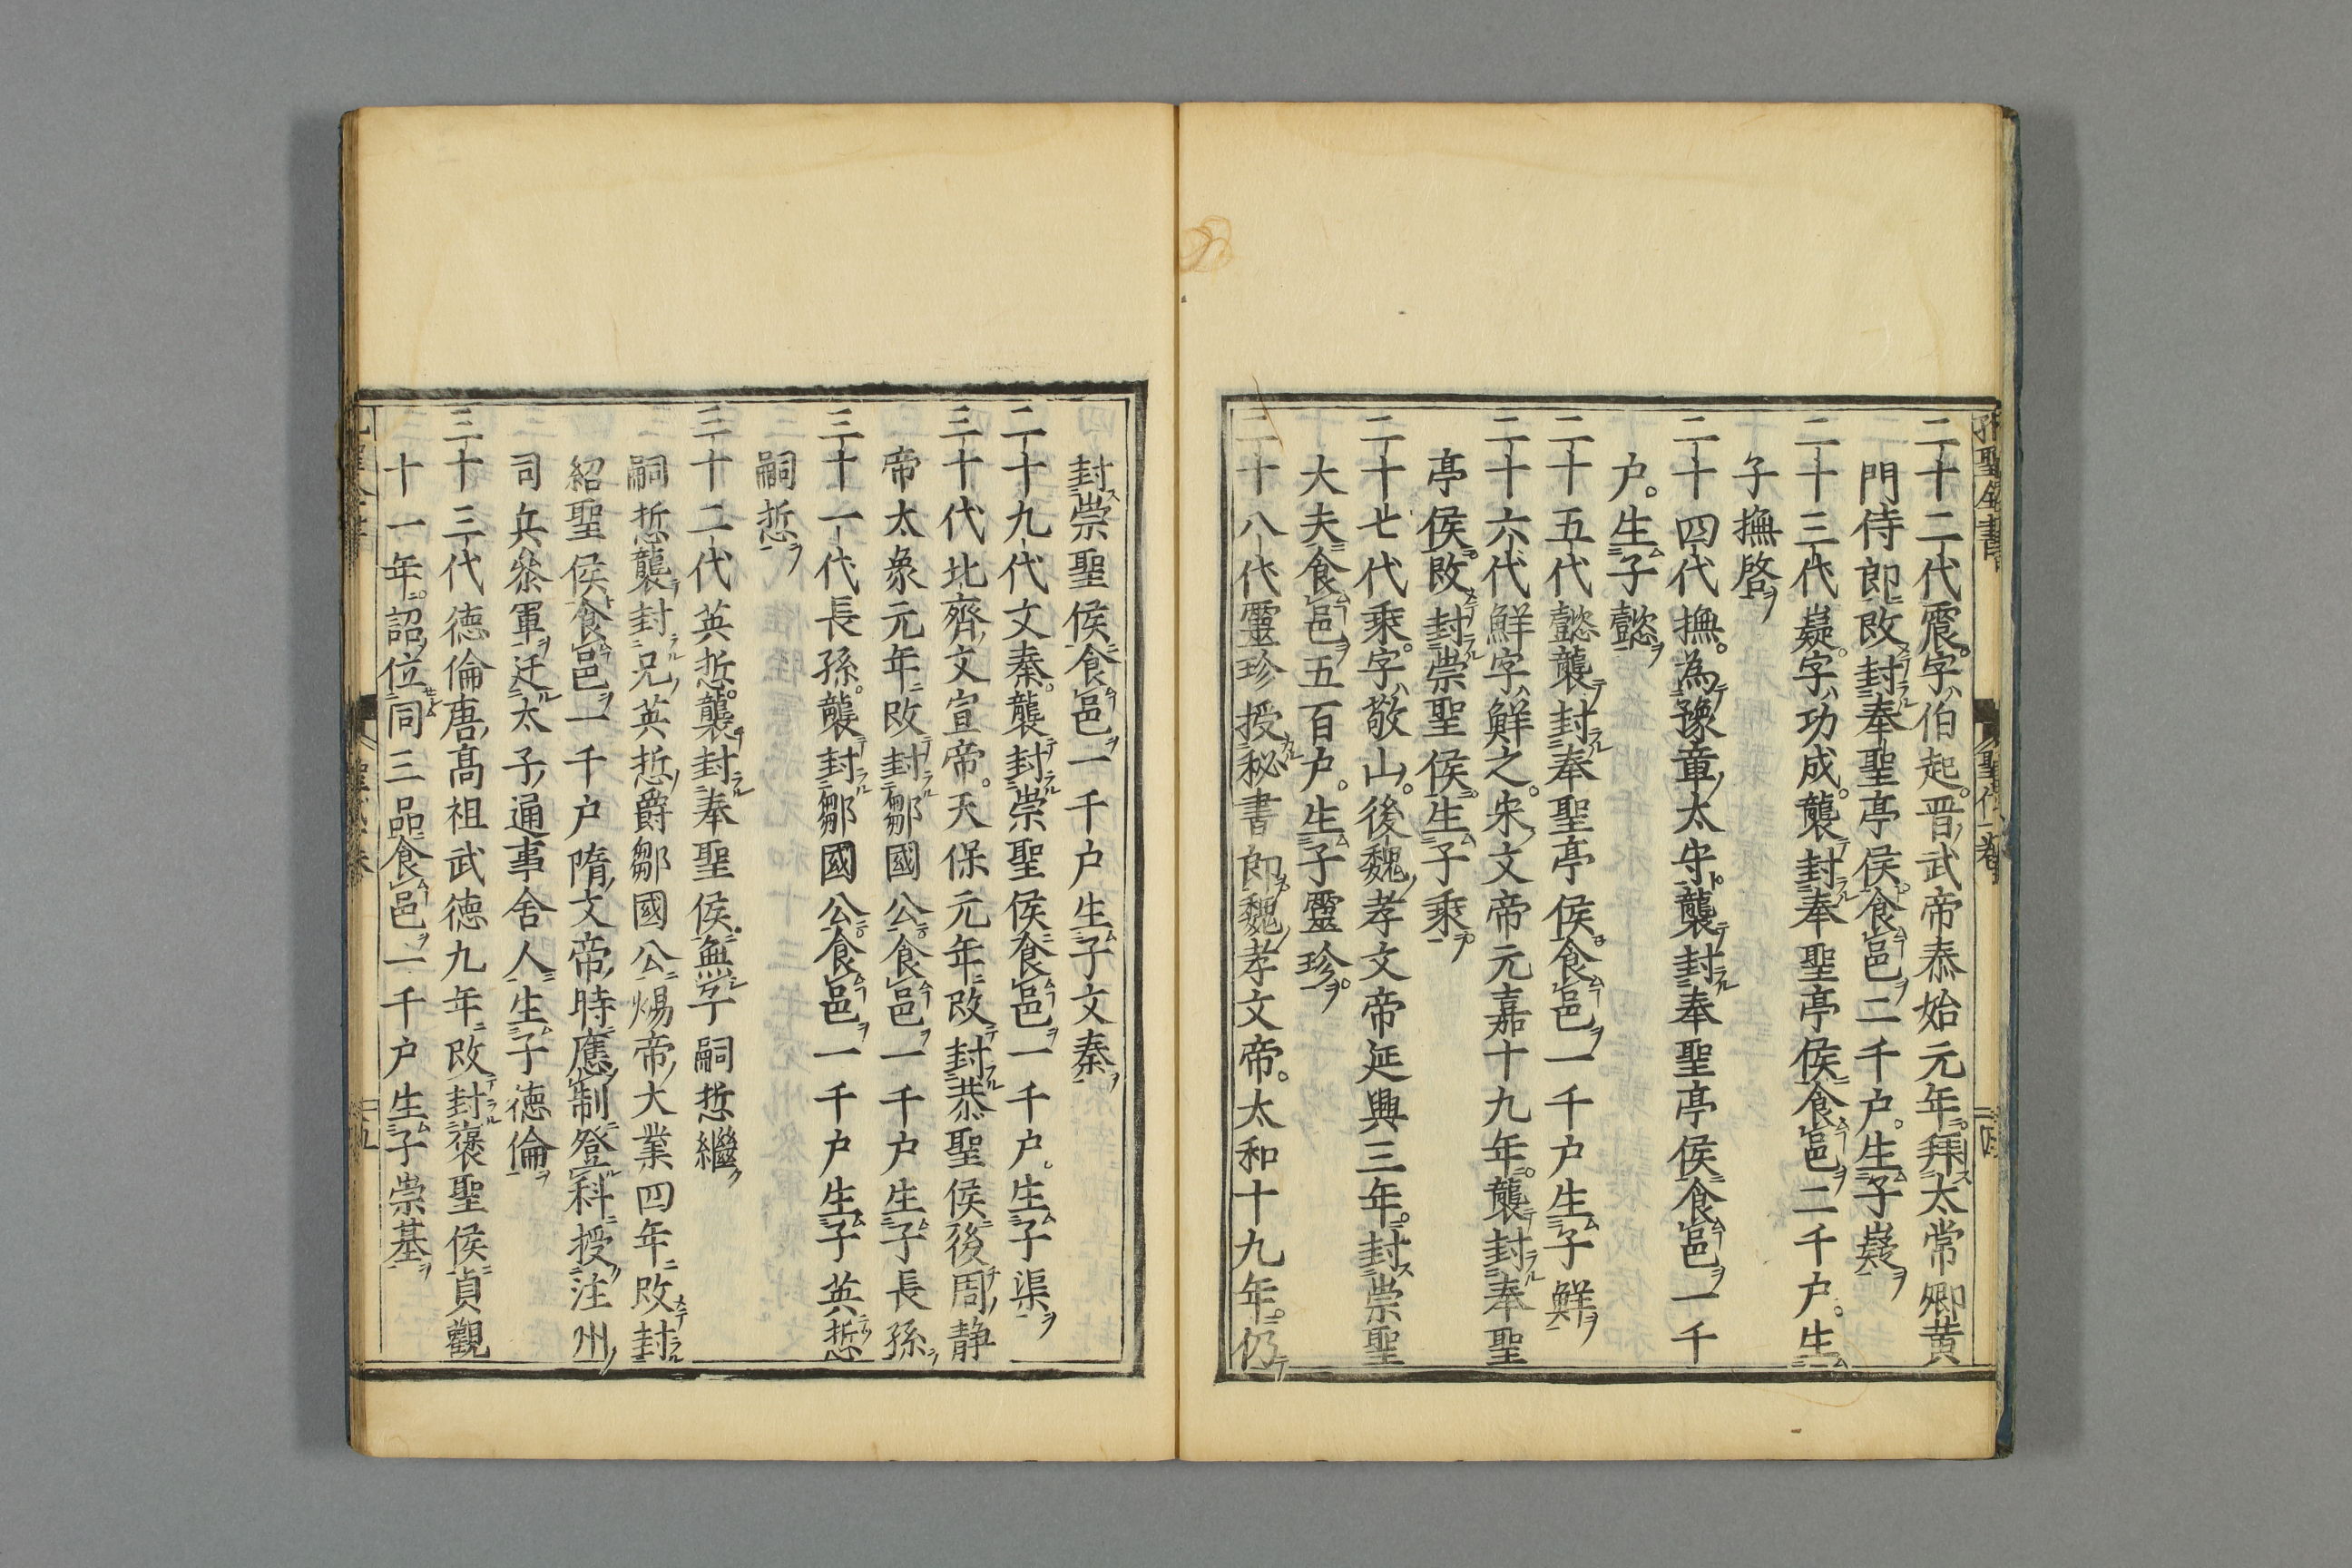 二十二代震字伯起晋武帝泰始元年拜太常卿黄
門侍郎改封奉聖亭侯食邑二千户生子嶷
二十三代嶷字功成襲封奉聖亭侯食邑二千户生
子撫啓
二十四代撫為豫章太守襲封奉聖亭侯食邑一千
户生子懿
二十五代懿襲封奉聖亭侯食邑一千户生子鮮
二十六代鮮字鮮之宋文帝元嘉十九年襲封奉聖
亭侯改封崇聖侯生子乘
二十七代乘字敬山後魏孝文帝延興三年封崇聖
大夫食邑五百户生子靈珍
二十八代靈珍授秘書郎魏孝文帝太和十九年仍
封崇聖侯食邑一千户生子文秦
二十九代文秦襲封崇聖侯食邑一千户生子渠
三十代北齊文宣帝天保元年改封恭聖侯後周静
帝太象元年改封鄒國公食邑一千户生子長孫
三十一代長孫襲封鄒國公食邑一千户生子英悊
嗣悊
三十二代英悊襲封奉聖侯無子嗣悊繼
嗣悊襲封兄英悊爵鄒國公煬帝大業四年改封
紹聖侯食邑一千户隋文帝時應制登科授注州
司兵叅軍迁太子通事舍人生子德倫
三十三代德倫唐高祖武德九年改封褒聖侯貞觀
十一年詔位同三品食邑一千户生子崇基